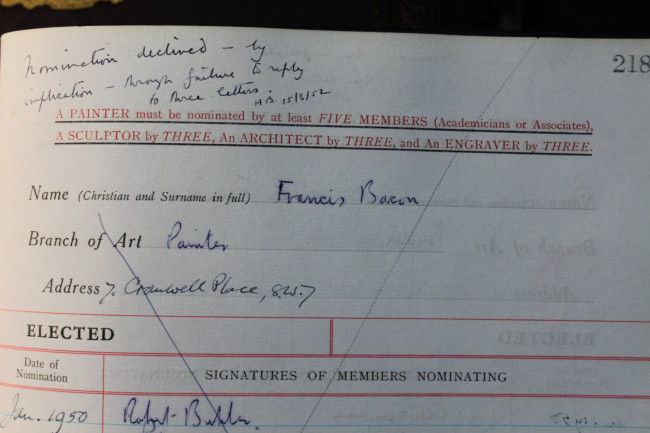 218
Nomination declined – by
implication – through failure to reply
to three letters. H.B. 15/3/52
A PAINTER must be nominated by at least FIVE MEMBERS (Academicians or Associates),
A SCULPTOR by THREE, An ARCHITECT by THREE, and An ENGRAVER by THREE.
Name (Christian and Surname in full) Francis Bacon
Branch of Art Painter
Address 7. Cromwell Place, S.W.7
ELECTED
Date of
Nomination
SIGNATURES OF MEMBERS NOMINATING
Jan. 1950 Robert